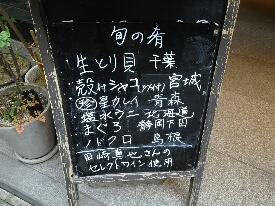 旬の肴
・生とり貝 千葉
・殻付シャコ(ツメ付) 宮城
・珍 星カレイ 青森
・塩水ウニ 北海道
・まぐろ 静岡下田
・ノドクロ 島根
田崎真也さんの
セレクトワイン使用